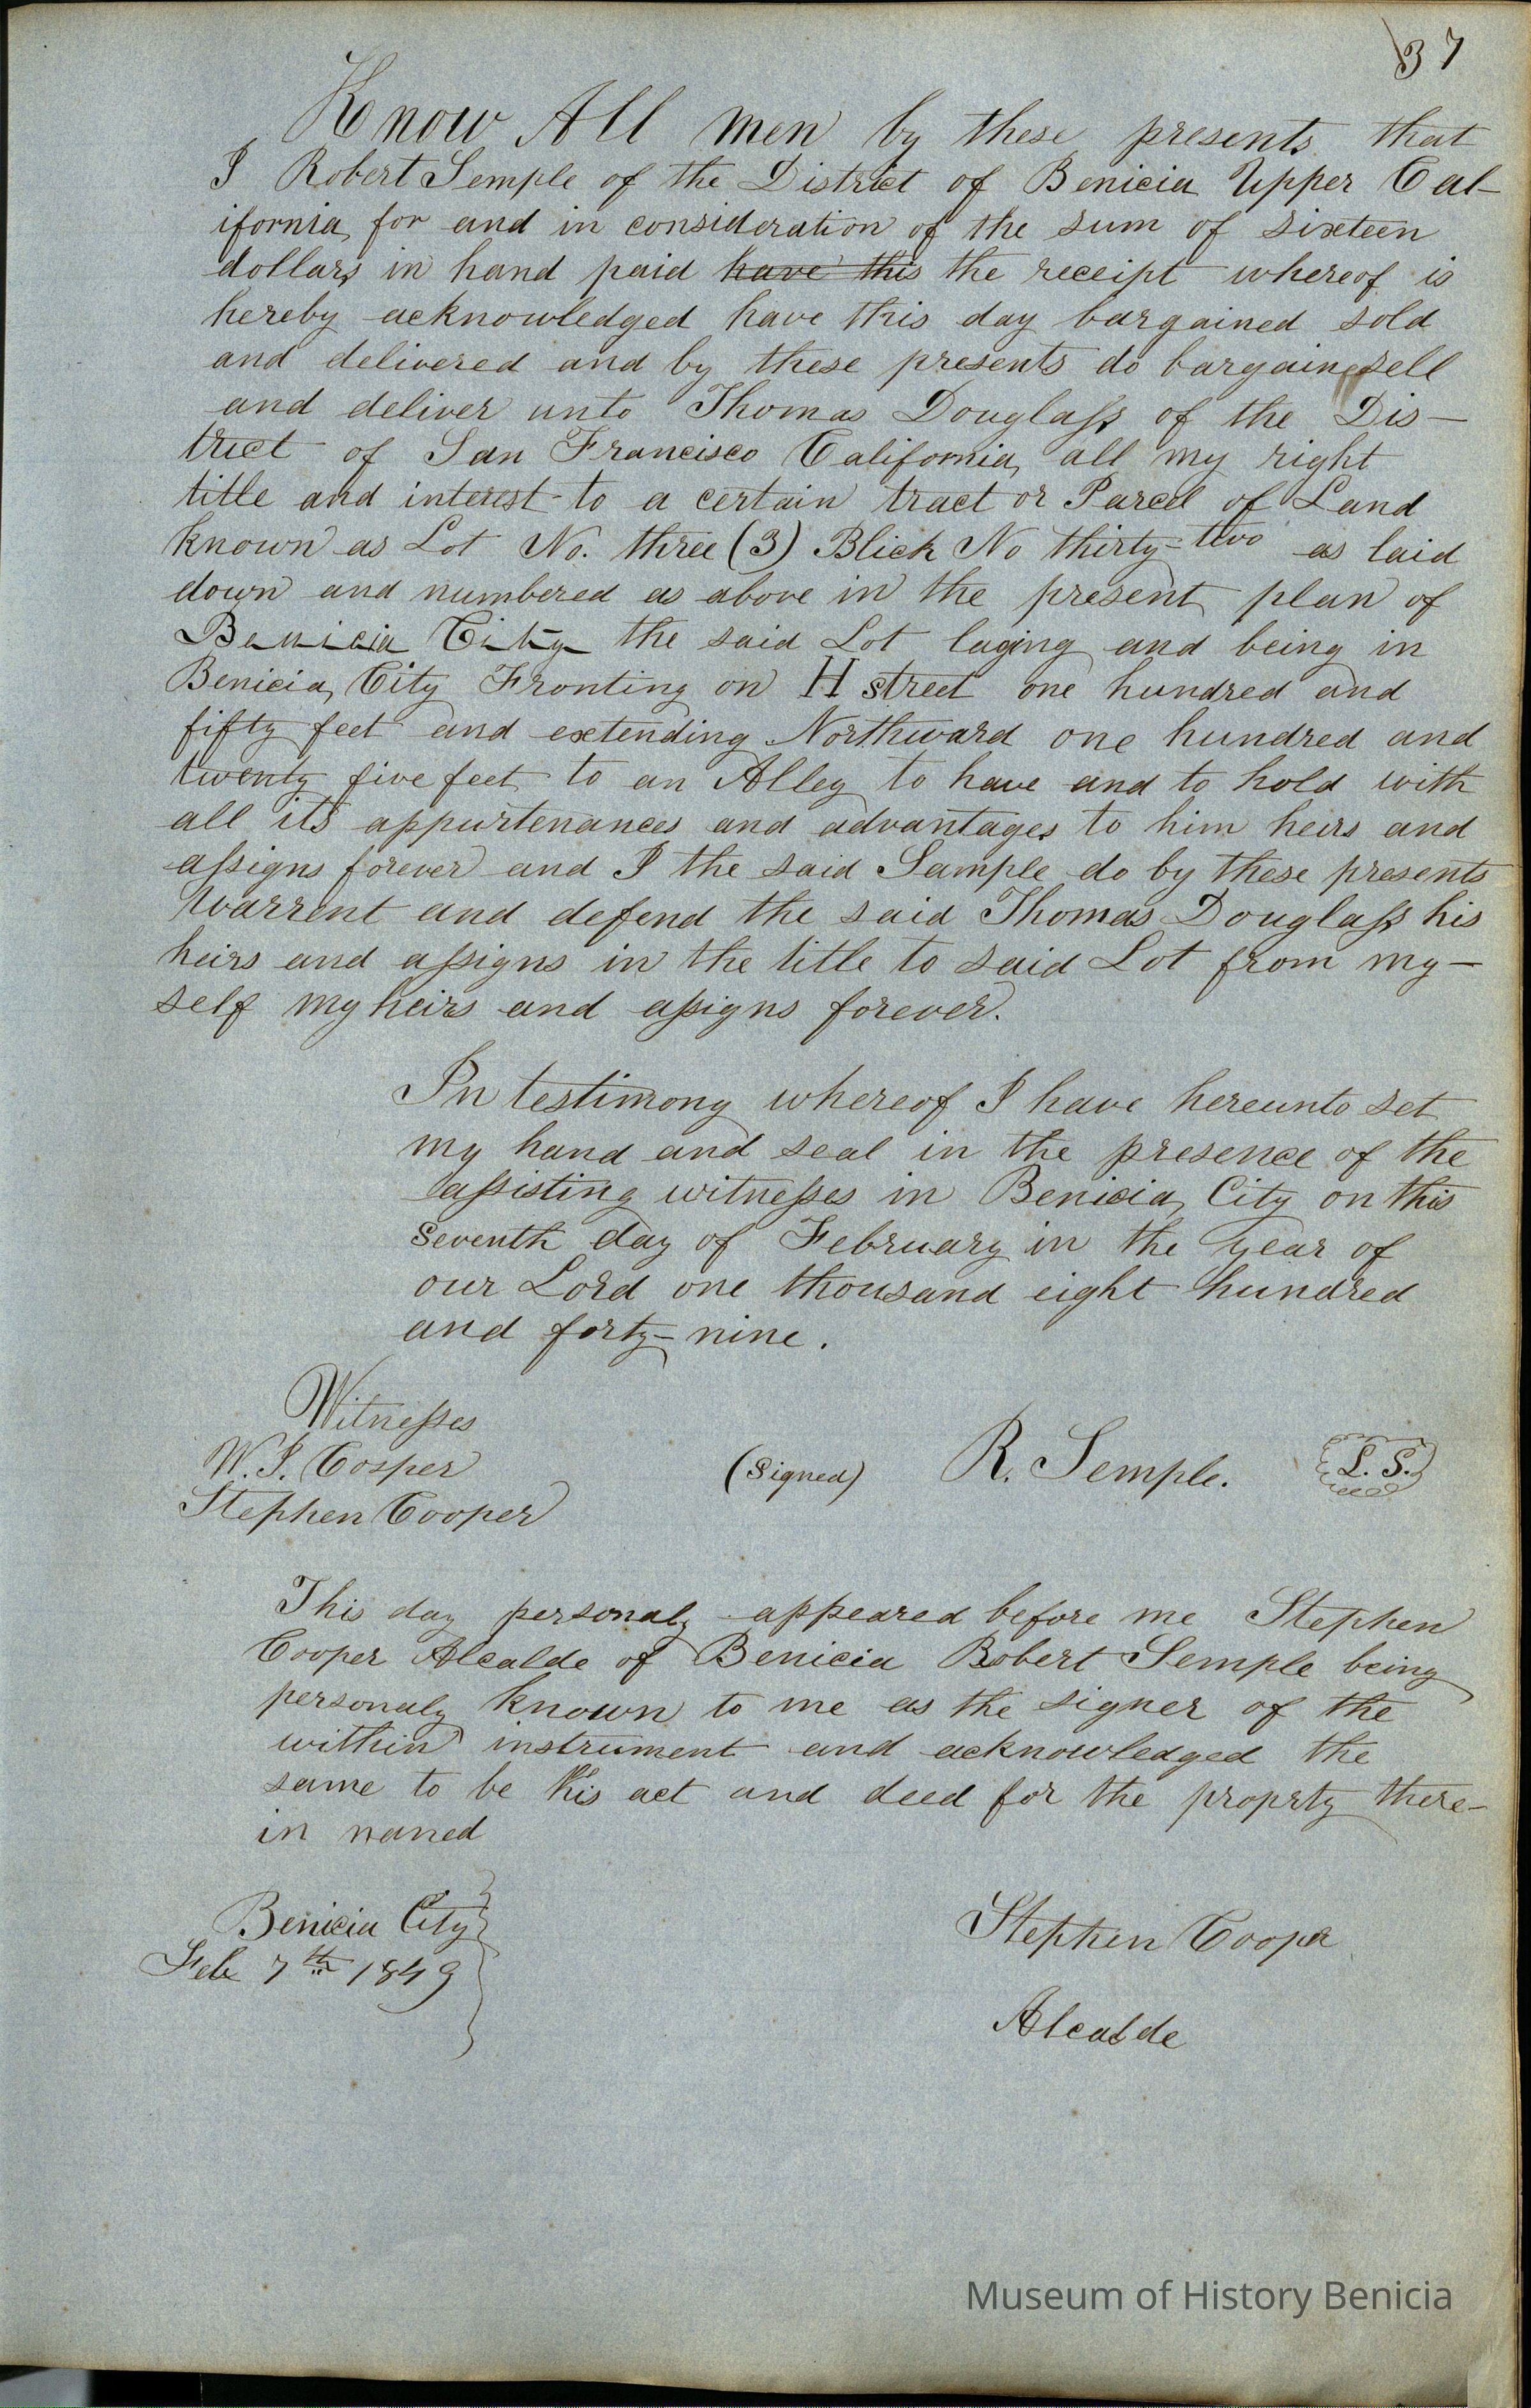 37
Know All men by these presents that
I Robert Semple of the District of Benicia Upper Cal-
ifornia for and in consideration of the sum of sixteen
dollars in hand paid have this the receipt whereof is
hereby acknowledged have this day bargained sold
and delivered and by these presents do bargain sell
and deliver unto Thomas Douglass of the Dis-
trict of San Francisco California all my right
title and interest to a certain tract or Parcel of Land
known as Lot No. three (3) Block No thirty-two as laid
down and numbered as above in the present plan of
Benicia City the said Lot laying and being in
Benicia City Fronting on H street one hundred and
fifty feet and extending Northward one hundred and
twenty five feet to an Alley to have and to hold with
all its appurtenances and advantages to him heirs and
assigns forever and I the said Sample do by these presents
warrent and defend the said Thomas Douglass his
heirs and assigns in the title to said Lot from my-
self my heirs and assigns forever.
In testimony whereof I have hereunto set
my hand and seal in the presence of the
assisting witnesses in Benicia City on this
Seventh day of February in the year of
our Lord one thousand eight hundred
and forty-nine.
Witnesses
W. I. Cooper
Stephen Cooper
(Signed) R. Semple. L. S.
This day personaly appeared before me Stephen
Cooper Alcalde of Benicia Robert Semple being
personaly known to me as the signer of the
within instrument and acknowledged the
same to be his act and deed for the proprty there-
in named
Benicia City
Feb 7th 1849
Stephen Cooper
Alcalde
Museum of History Benicia